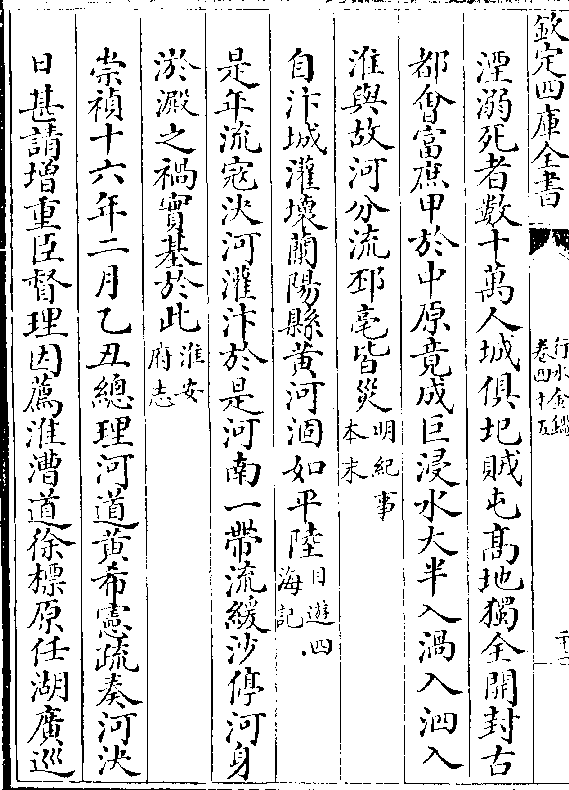 欽定四庫全書
行水金鑑
卷四十五
湮溺死者数十萬人城俱圮賊屯高地獨全開封古
都會富庶甲於中原竟成巨浸水大半入渦入泗入
淮與故河分流邳亳皆災明紀事
本末
自汴城灌壞蘭陽縣黃河涸如平陸目遊四
海記
是年流寇決河灌汴於是河南一帶流緩沙停河身
淤澱之禍實基於此淮安
府志
崇禎十六年二月乙丑總理河道黃希憲疏奏河決
日甚請增重臣督理因薦淮漕道徐標原任湖廣巡